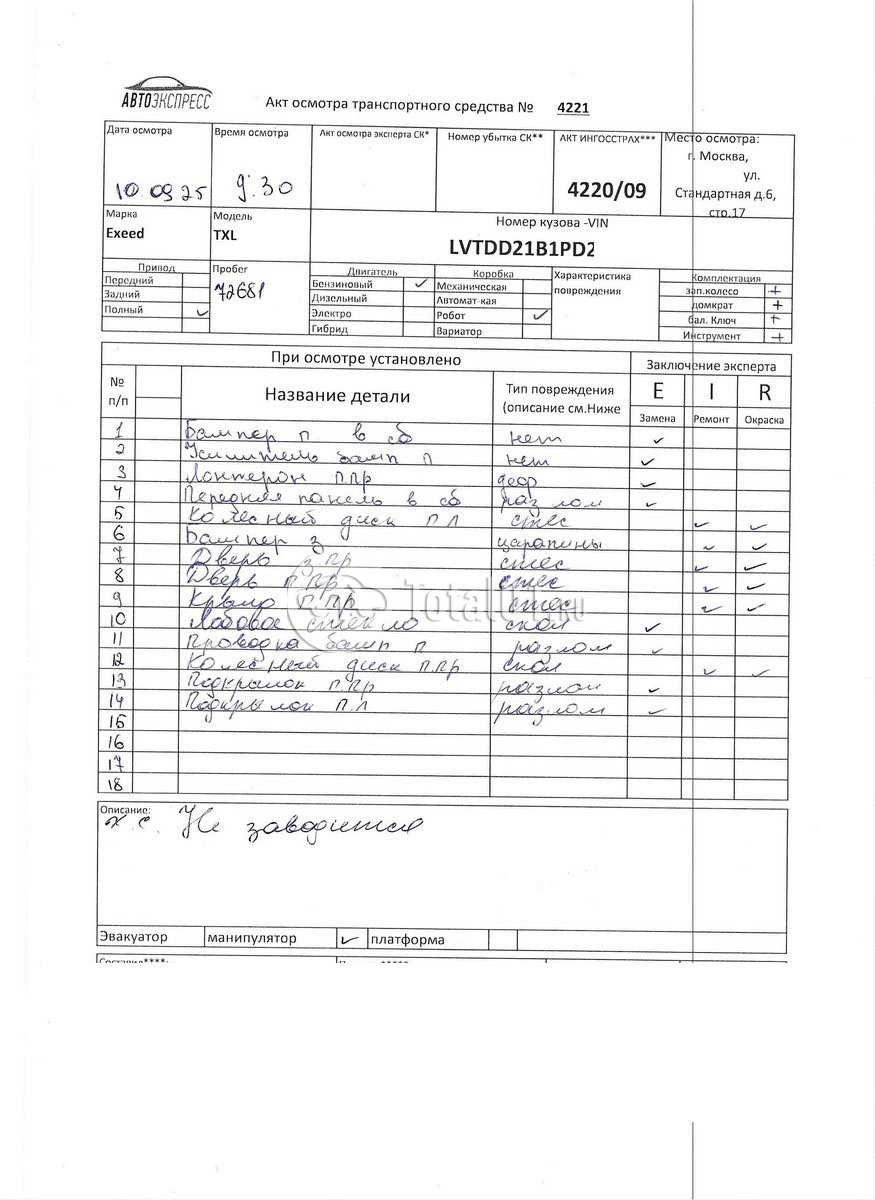 АВТОЭКСПРЕСС
Акт осмотра транспортного средства № 4221
Дата осмотра
10 09 25
Время осмотра
9:30
Акт осмотра эксперта СК*
Номер убытка СК**
АКТ ИНГОССТРАХ***
4220/09
Место осмотра:
г. Москва,
ул.
Стандартная д.6,
стр.17
Марка
Exeed
Модель
TXL
Номер кузова -VIN
LVTDD21B1PD2
Привод
Передний
Задний
Полный ✓
Пробег
72681
Двигатель
Бензиновый ✓
Дизельный
Электро
Гибрид
Коробка
Механическая
Автомат-кая
Робот ✓
Вариатор
Характеристика
повреждения
Комплектация
зап.колесо +
домкрат +
бал. Ключ +
Инструмент +
При осмотре установлено
Заключение эксперта
№
п/п
Название детали
Тип повреждения
(описание см.Ниже
E I R
Замена Ремонт Окраска
1 Бампер п в сб нет ✓
2 Усилитель бамп п нет ✓
3 Лонжерон п.пр деф ✓
4 Передняя панель в сб разлом ✓
5 Колесный диск п л стес ✓ ✓
6 Бампер з царапины ✓ ✓
7 Дверь з пр стес ✓ ✓
8 Дверь п.пр стес ✓ ✓
9 Крыло п пр стес ✓ ✓
10 Лобовое стекло скол ✓
11 Проводка бамп п разлом ✓
12 Колесный диск п.пр скол ✓ ✓
13 Подкрылок п пр разлом ✓
14 Подкрылок п.л разлом ✓
15
16
17
18
TotalCar.ru
Описание:
х с. Не заводится
Эвакуатор манипулятор ✓ платформа
Составил****: